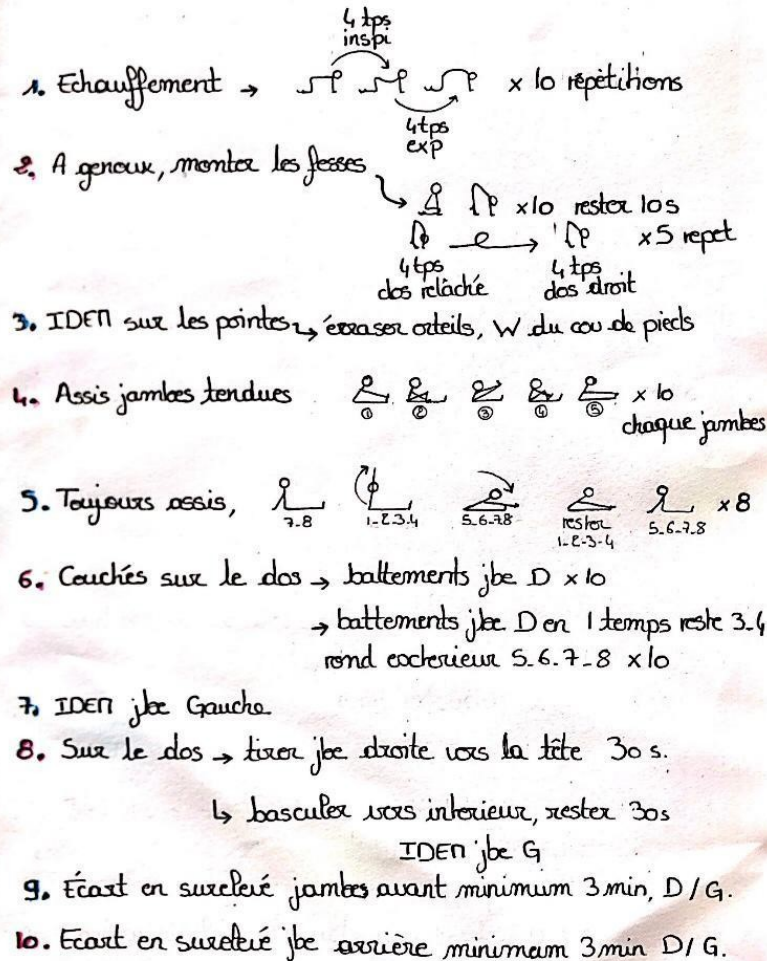 4 tps
inspi
1. Echauffement → x 10 répétitions
4tps
exp
2. A genoux, monter les fesses
x10 rester 10s
x5 repet
4tps 4tps
dos relâché dos droit
3. IDEM sur les pointes ↳ écraser orteils, W du cou de pieds
4. Assis jambes tendues x 10
① ② ③ ④ ⑤
chaque jambes
5. Toujours assis, x8
7-8 1-2-3-4 5-6-7-8 rester 5-6-7-8
1-2-3-4
6. Couchés sur le dos → battements jbe D x10
→ battements jbe D en 1 temps reste 3-4
rond exterieur 5-6-7-8 x10
7. IDEM jbe Gauche
8. Sur le dos → tirer jbe droite vers la tête 30 s.
↳ basculer vers interieur, rester 30s
IDEM jbe G
9. Écart en surelevé jambes avant minimum 3 min, D/G.
10. Ecart en surelevé jbe arrière minimum 3 min D/G.